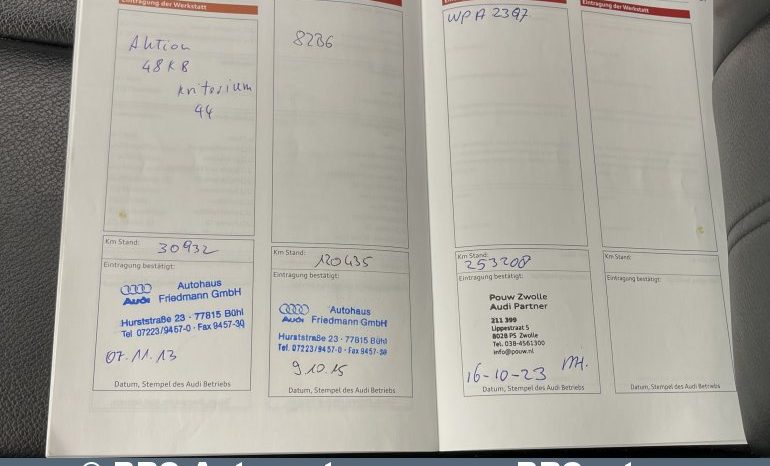 Eintragung der Werkstatt
Aktion
48K8
Kriterium
44
Km Stand: 30932
Eintragung bestätigt:
Audi
Autohaus
Friedmann GmbH
Hurststraße 23 · 77815 Bühl
Tel 07223/9457-0 · Fax 9457-30
07.11.13
Datum, Stempel des Audi Betriebs
8236
Km Stand: 120435
Eintragung bestätigt:
Audi
Autohaus
Friedmann GmbH
Hurststraße 23 · 77815 Bühl
Tel. 07223/9457-0 · Fax 9457-30
9.10.15
Datum, Stempel des Audi Betriebs
WPA 2397
Km Stand:
253208
Eintragung bestätigt:
Pouw Zwolle
Audi Partner
211 399
Lippestraat 5
8028 PS Zwolle
Tel. 038-4561300
info@pouw.nl
16-10-23
Datum, Stempel des Audi Betriebs
Eintragung der Werkstatt
Km Stand:
Eintragung bestätigt:
Datum, Stempel des Audi Betriebs